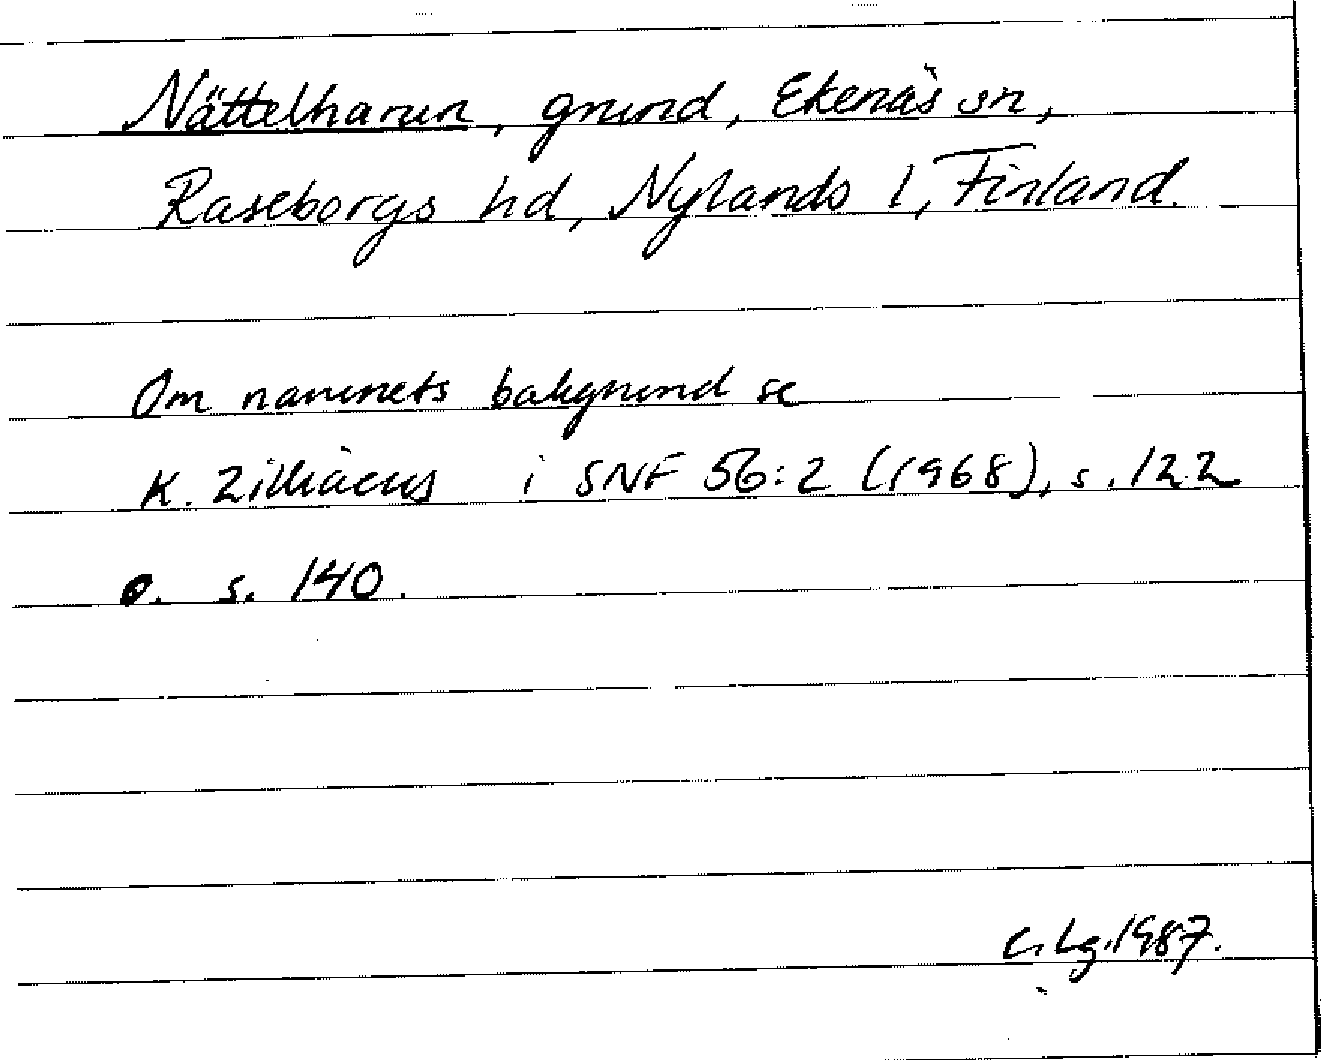 Nättelharun, grund, Ekenäs sn,
Raseborgs hd, Nylands l, Finland.
Om namnets bakgrund se
K. Zilliacus i SNF 56:2 (1968), s. 122
o. s. 140.
C. Lg. 1987.